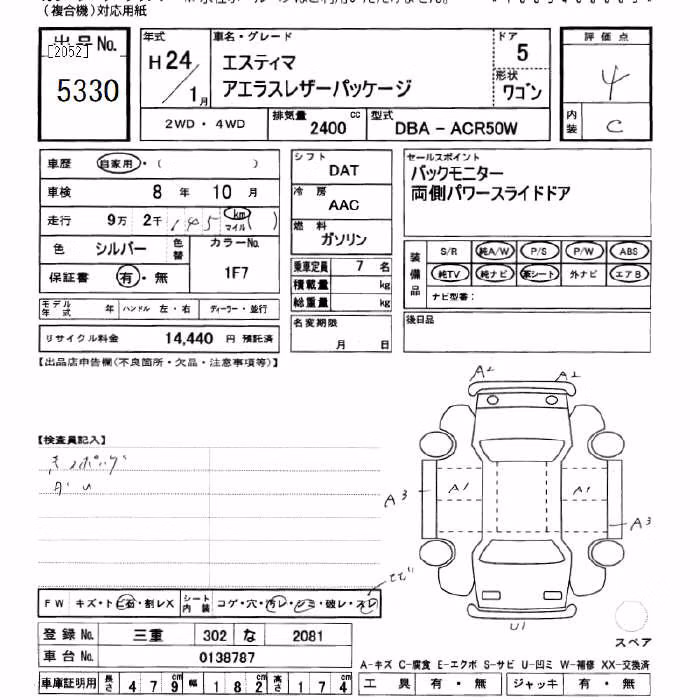 (複合機)対応用紙
出品No.
[2052]
5330
年式
H24/1月
車名・グレード
エスティマ
アエラスレザーパッケージ
ドア
5
形状
ワゴン
評価点
4
内装
C
2WD・4WD
排気量
2400 cc
型式
DBA-ACR50W
車歴 自家用・( )
車検 8年 10月
走行 9万 2千 145 km マイル ( )
色 シルバー 色替
カラーNo.
1F7
保証書 有・無
モデル年式 年 ハンドル 左・右 ディーラー・並行
リサイクル料金 14,440 円 預託済
シフト
DAT
冷房
AAC
燃料
ガソリン
乗車定員 7 名
積載量 kg
総重量 kg
名変期限
月 日
セールスポイント
バックモニター
両側パワースライドドア
装備品
S/R 純A/W P/S P/W ABS
純TV 純ナビ 革シート 外ナビ エアB
ナビ型番:
後日品
【出品店申告欄(不良箇所・欠品・注意事項等)】
【検査員記入】
A2
A2
A3
A1
A1
A3
U1
スペア
FW キズ・トビ石・割レX
シート内装 コゲ・穴・汚レ・シミ・破レ・スレ
登録No. 三重 302 な 2081
車台No. 0138787
A-キズ C-腐食 E-エクボ S-サビ U-凹ミ W-補修 XX-交換済
車庫証明用 長さ 479cm 幅 182cm 高さ 174cm
工具 有・無 ジャッキ 有・無